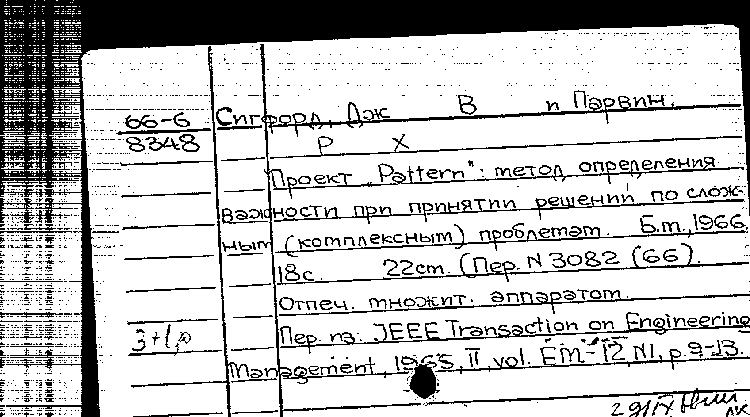 66-6 Сигфорд, Дж В и Парвин,
8348 Р Х
Проект „Pattern": метод определения
важности при принятии решений по слож-
ным (комплексным) проблемам. Б.м., 1966.
18с. 22см. (Пер. N 3082 (66).
Отпеч. множит. аппаратом.
Пер. из: JEEE Transaction on Engineering
Management, 1965, II, vol. EM-12, N1, p. 9-13.